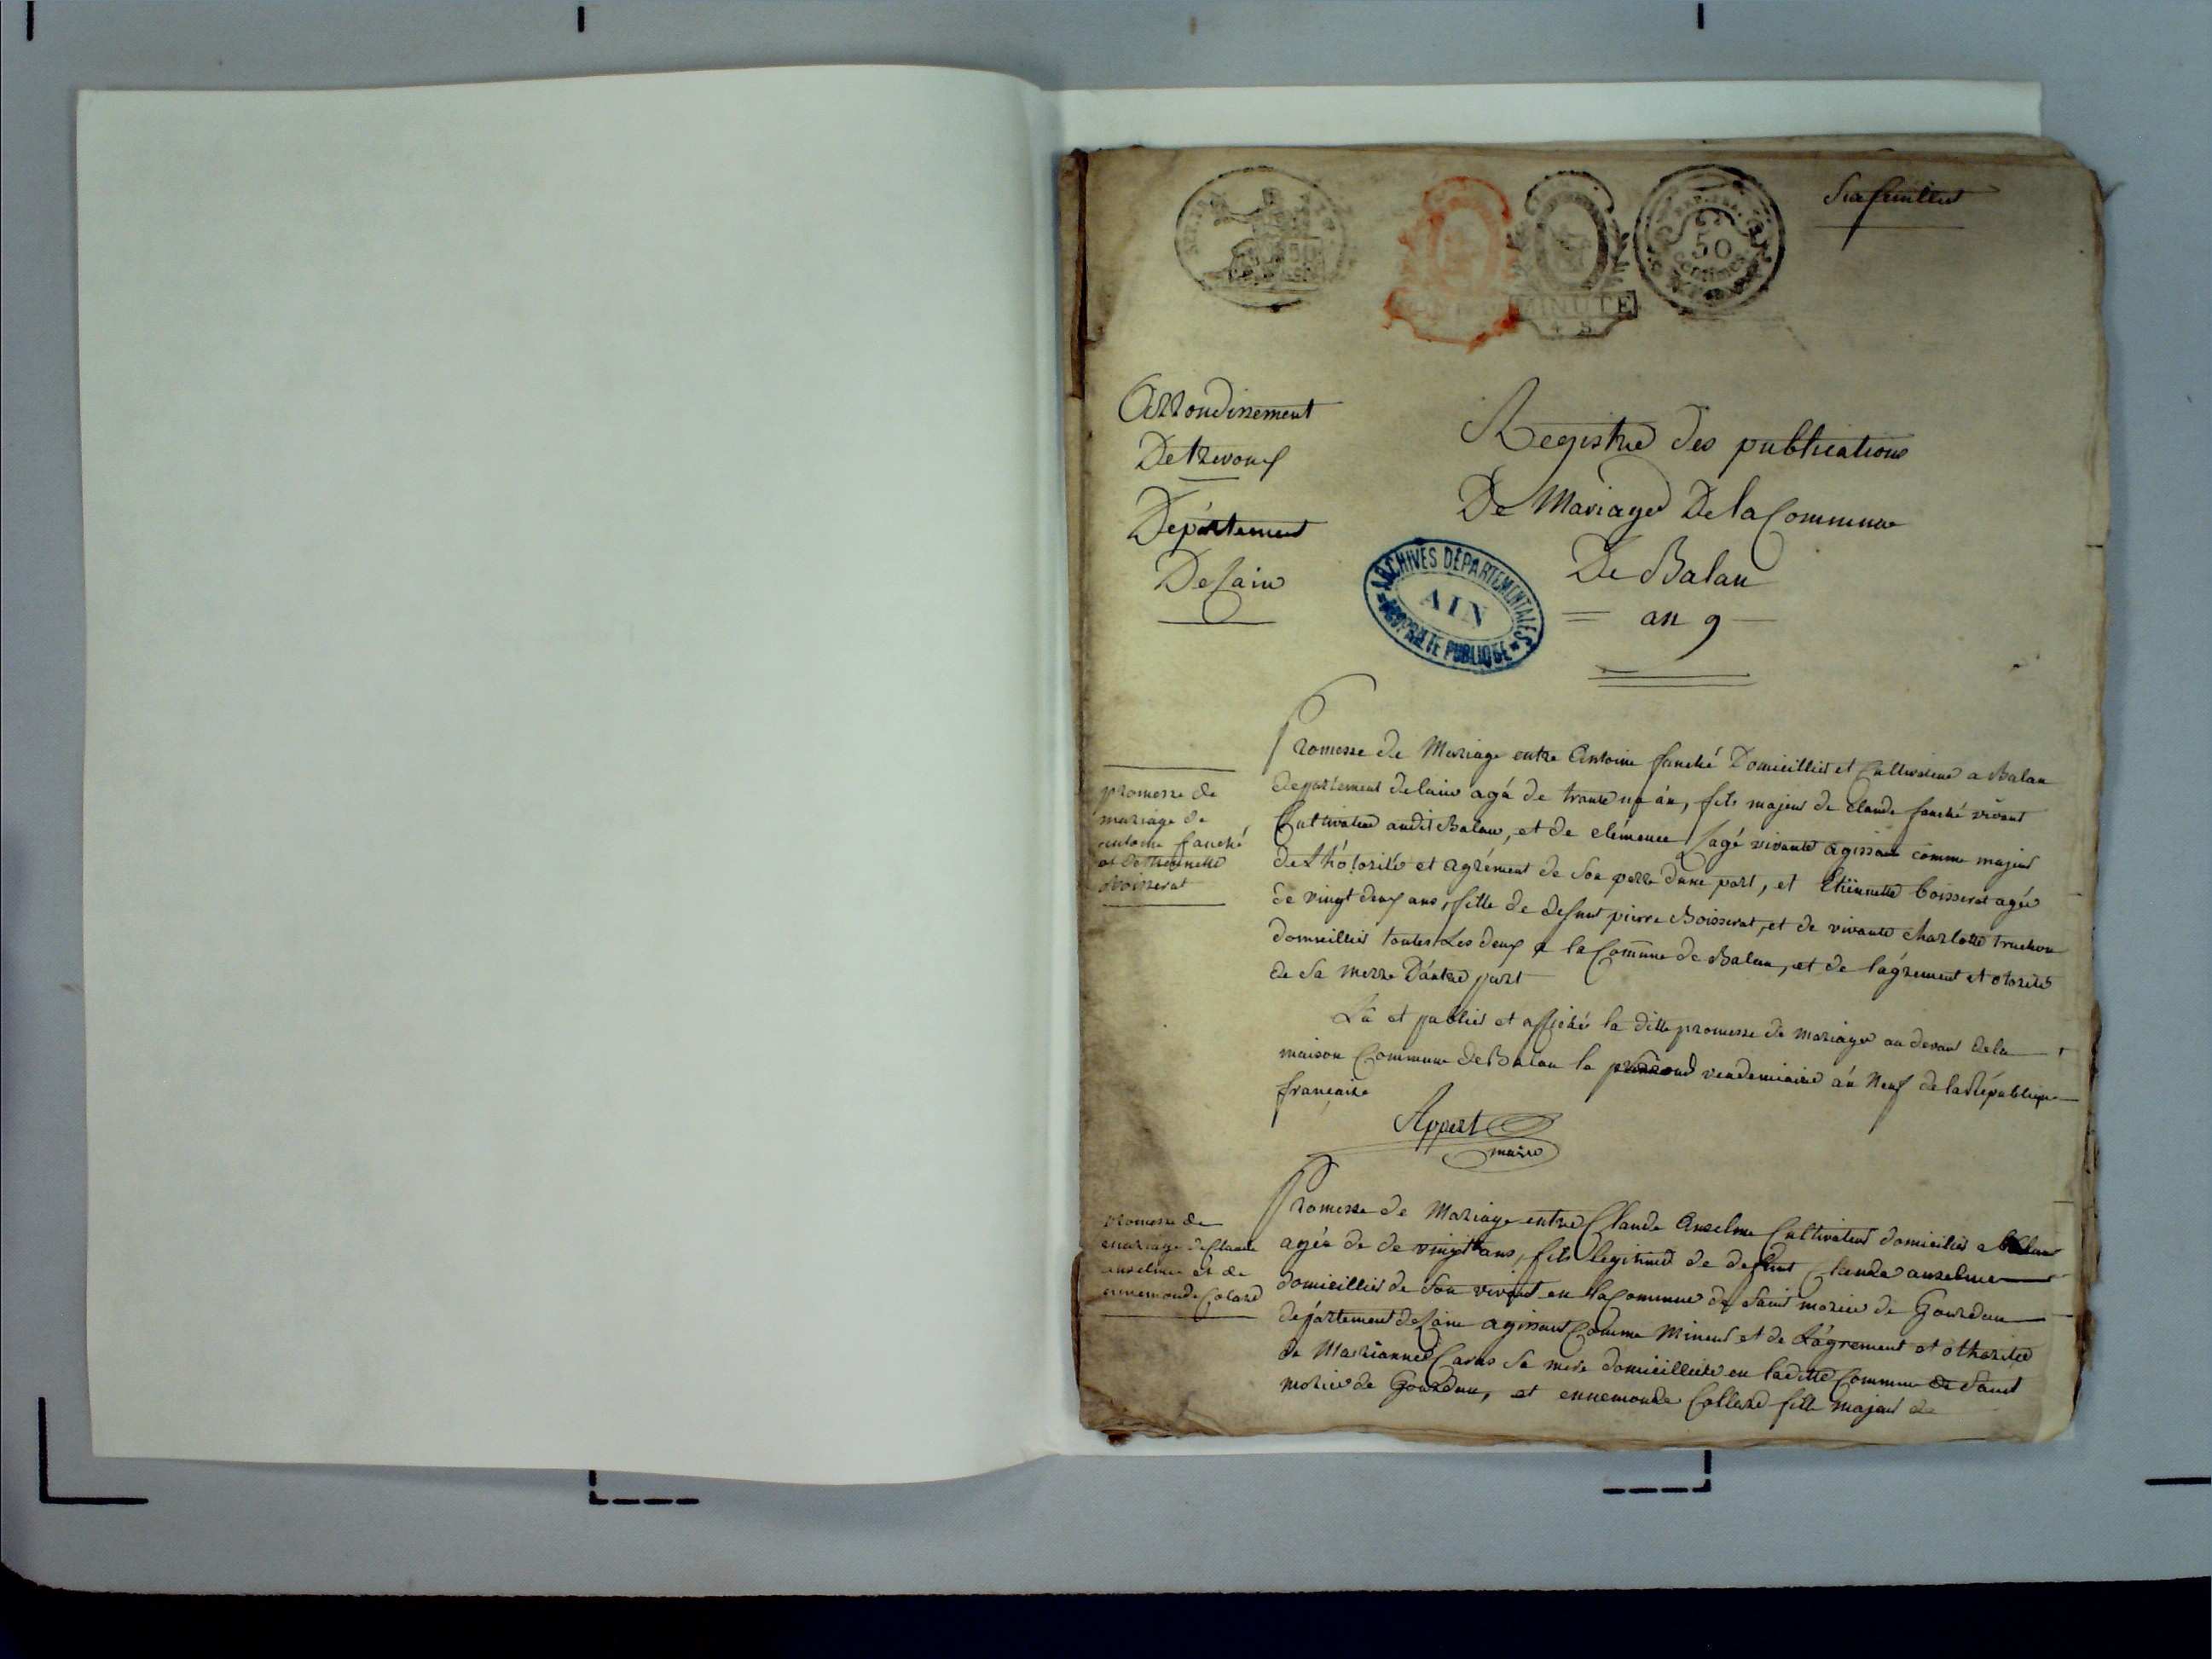 Six feuillets
50
centimes
MINUTE
Arrondissement
De trevoux
Département
De Lain
Registre des publications
De Mariage De la Commune
De Balan
an 9
ARCHIVES DÉPARTEMENTALES
AIN
PROPRIÉTÉ PUBLIQUE
promesse de
mariage de
antoine fanché
et detiennette
Boisserat
Promesse de Mariage entre Antoine fanché Domicillié et Cultivateur a Balan
departement delain agé de trante un án, fils majeur de Claude fanché vivant
Cultivateur audit Balan, et de clémence Lagé vivante agissant comme majeur
de L'hótorité et agrément de Son perre dune part, et Etiennette boisserat agée
de vingt deux ans, fille de defunt pierre Boisserat, et de vivante charlotte truchon
domicilliés toutes Les deux a la Commune de Balan, et de lágrement et otorité
de Sa merre Dáutre part
Lu et publié et affiché la ditte promesse de mariage au devant de la
maison Commune de Balan le vendemiaire án Neuf de la République
française
Appert
maire
promesse de
mariage de Claude
anselme et de
ennemonde Colard
Promesse de Mariage entre Claude Anselme Cultivateur domicilié a Balan
agée de de vingt ans, fils legitime de defunt Claude anselme
domicillié de Son vivant en la Commune de Saint morice de Gourdan
département de Lain agissant Comme Mineur et de Lágrement et othorité
de Marianne Caras sa mere domicilliée en laditte Commune de Saint
morice de Gourdan, et ennemonde Collard fille majeur de